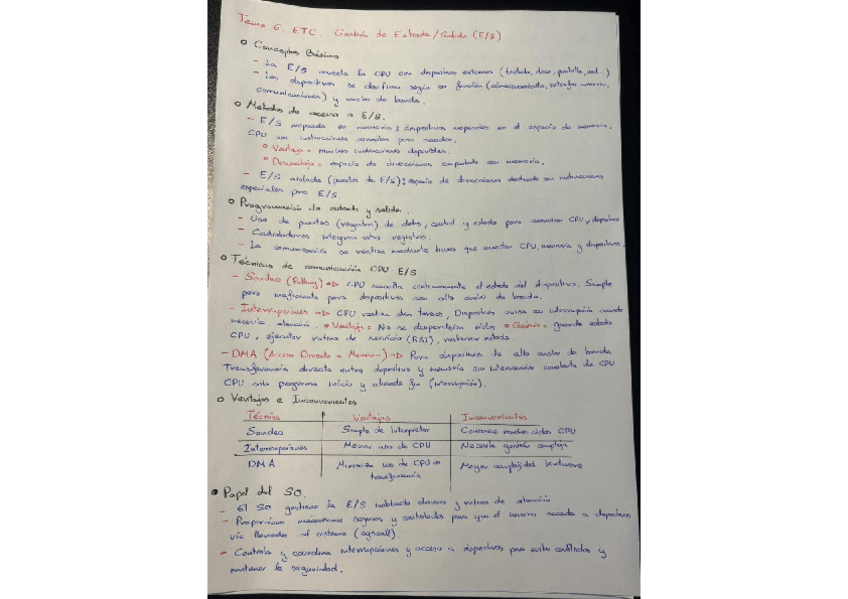 Tema 6. ETC. Gestión de Entrada/Salida (E/S)
Conceptos Básicos
- La E/S conecta la CPU con dispositivos externos (teclado, disco, pantalla, red...)
- Los dispositivos se clasifican según su función (almacenamiento, interfaz humana,
comunicaciones) y ancho de banda.
Métodos de acceso a E/S.
- E/S mapeada en memoria: dispositivos mapeados en el espacio de memoria,
CPU usa instrucciones normales para acceder.
Ventaja = muchas instrucciones disponibles.
Desventaja = espacio de direcciones compartido con memoria.
- E/S aislada (puertos de E/S): espacio de direcciones dedicado con instrucciones
especiales para E/S.
Programación de entrada y salida.
- Uso de puertos (registros) de datos, control y estado para comunicar CPU y dispositivo
- Controladores integran estos registros.
- La comunicación se realiza mediante buses que conectan CPU, memoria y dispositivos.
Técnicas de comunicación CPU E/S
- Sondeo (Polling) => CPU consulta continuamente el estado del dispositivo. Simple
pero ineficiente para dispositivos con alto ancho de banda.
- Interrupciones => CPU realiza otras tareas, Dispositivo avisa con interrupción cuando
necesita atención. Ventaja = No se desperdician ciclos Gestión = guardar estado
CPU, ejecutar rutina de servicio (RSI), restaurar estado.
- DMA (Acceso Directo a Memoria) => Para dispositivos de alto ancho de banda
Transferencia directa entre dispositivo y memoria sin intervención constante de CPU
CPU solo programa inicio y atiende fin (interrupción).
Ventajas e Inconvenientes
Técnica Ventajas Inconvenientes
Sondeo Simple de interpretar Consume muchos ciclos CPU
Interrupciones Menor uso de CPU Necesita gestión compleja
DMA Minimiza uso de CPU en Mayor complejidad hardware
transferencia
Papel del SO.
- El SO gestiona la E/S mediante drivers y rutinas de atención
- Proporciona mecanismos seguros y controlados para que el usuario acceda a dispositivos
vía llamadas al sistema (syscall).
- Controla y coordina interrupciones y acceso a dispositivos para evitar conflictos y
mantener la seguridad.